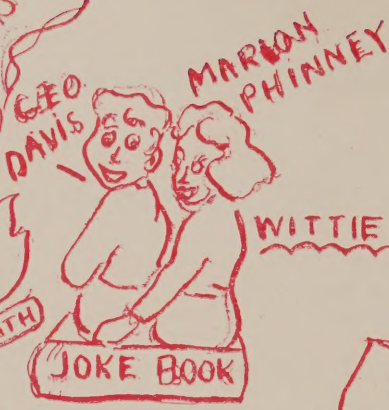 GEO.
DAVIS
MARION
PHINNEY
WITTIE
JOKE BOOK